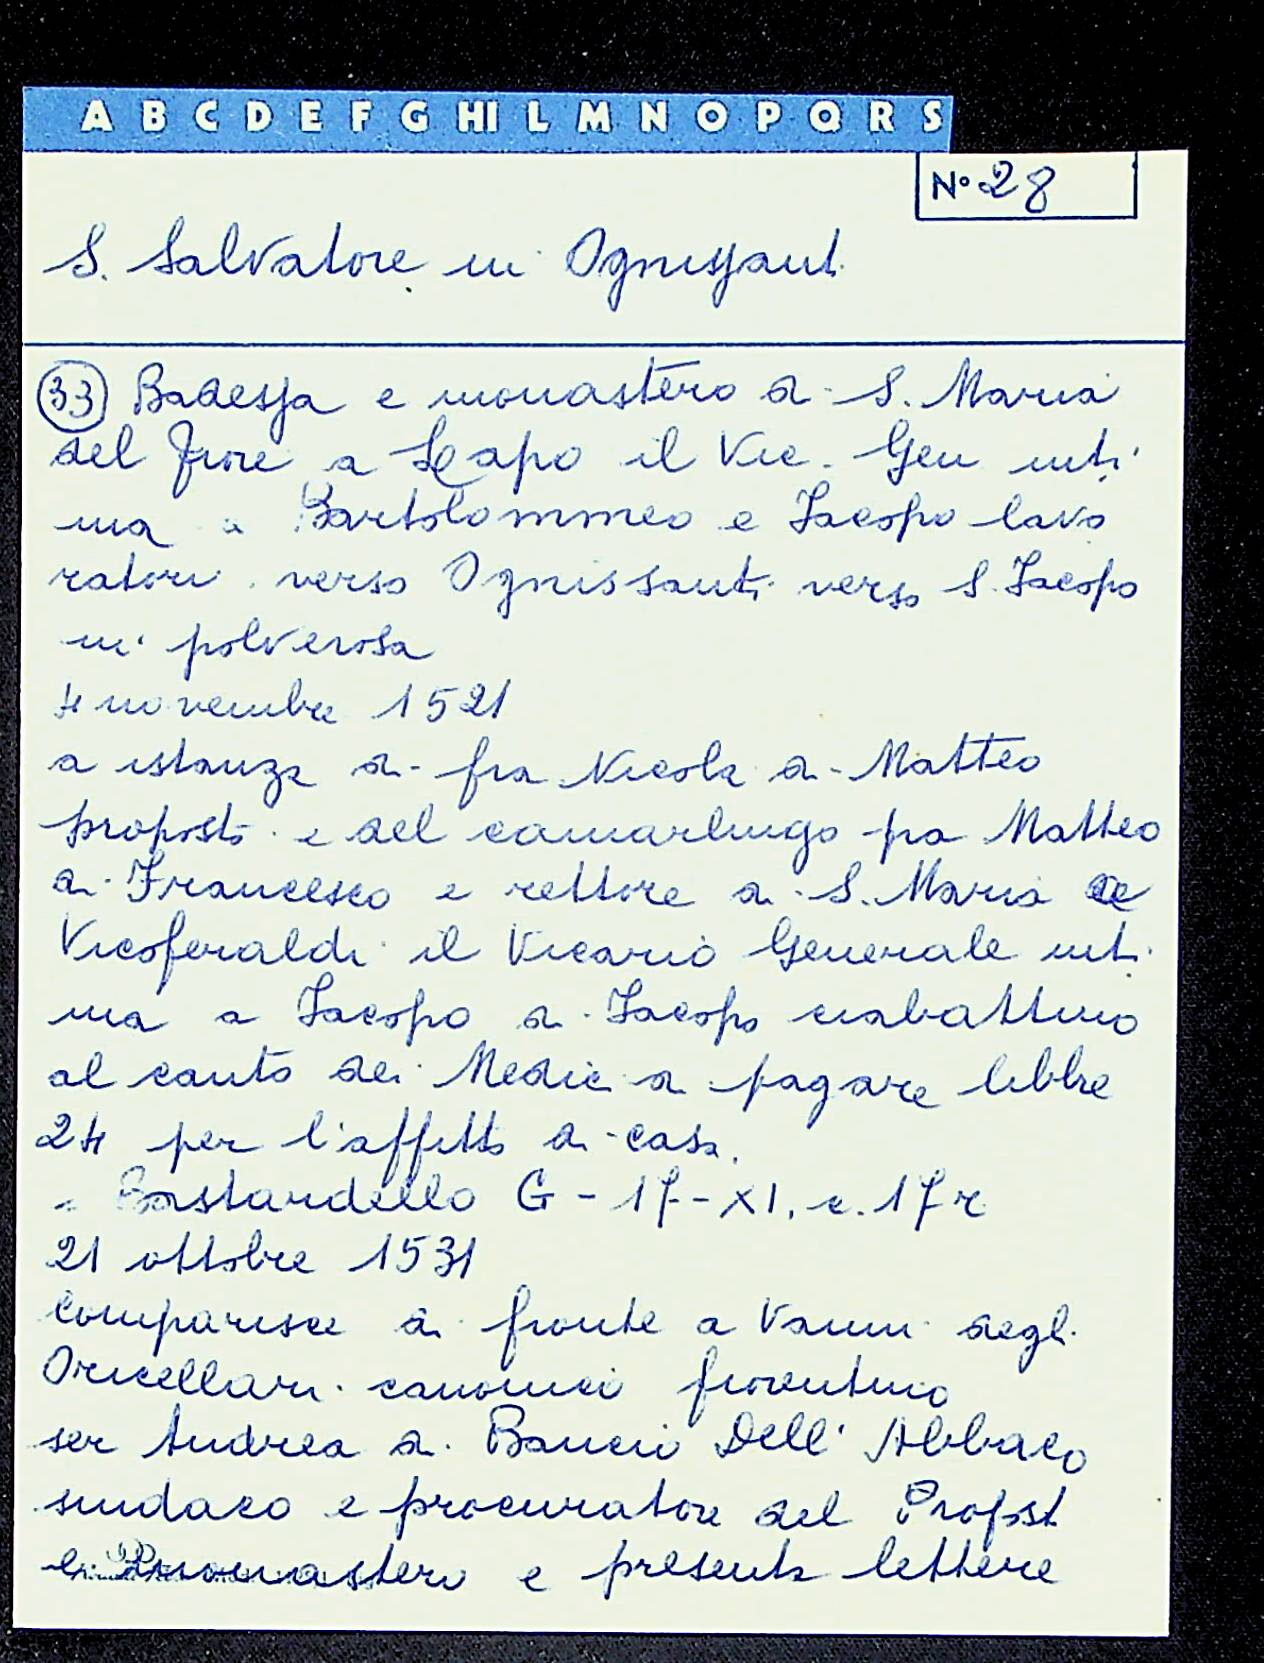 A B C D E F G HI L M N O P Q R S
N° 28
S. Salvatore in Ognissanti
33 Badessa e monastero di S. Maria
del fiore a Lapo il Vic. Gen inti
ma a Bartolommeo e Jacopo lavo
ratori verso Ognissanti verso S. Jacopo
in polverosa
4 novembre 1521
a istanza di fra Nicola di Matteo
proposto e del camarlingo fra Matteo
di Francesco e rettore di S. Maria de
Vicoferaldi il Vicario Generale inti
ma a Jacopo di Jacopo ciabattino
al canto dei Medici a pagare libbre
24 per l'affitto di casa.
Bastardello G - 17 - XI, c. 17 r
21 ottobre 1531
Comparisce di fronte a Vanni degli
Oricellari canonico fiorentino
ser Andrea di Bancio Dell' Abbaco
sindaco e procuratore del Propost
e monastero e presenta lettere